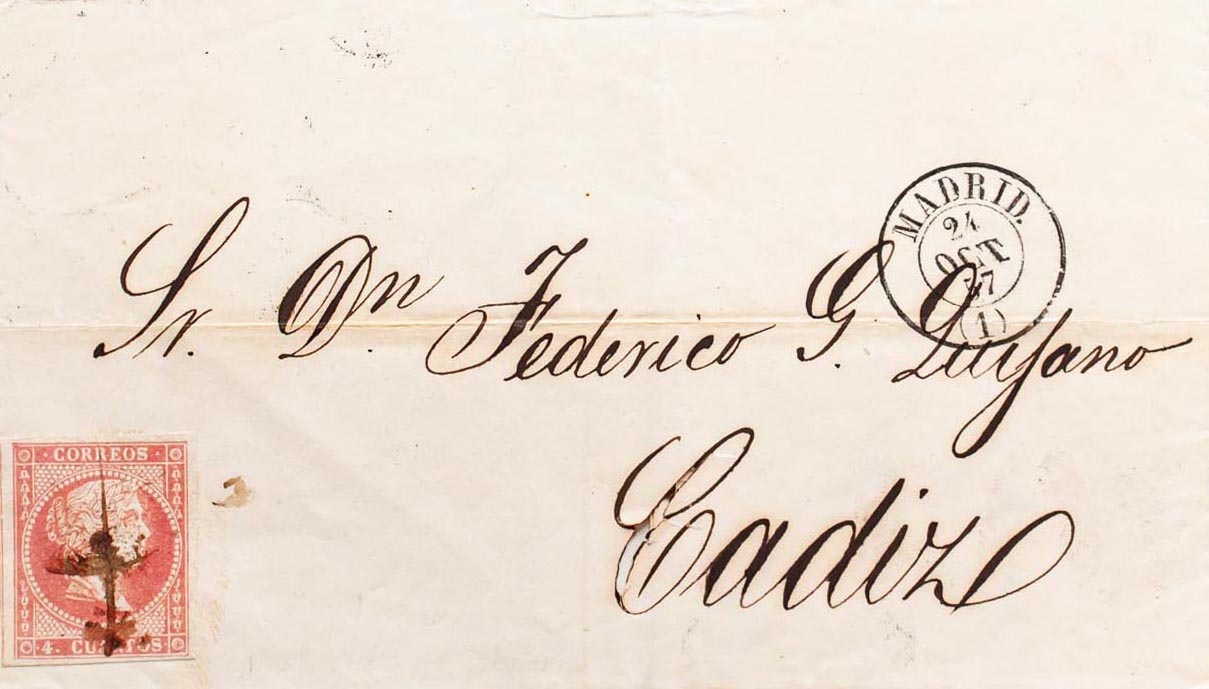 MADRID.
24
OCT
57
(1)
Sr. Dn Federico G. Quijano
Cadiz
CORREOS
4. CUARTOS